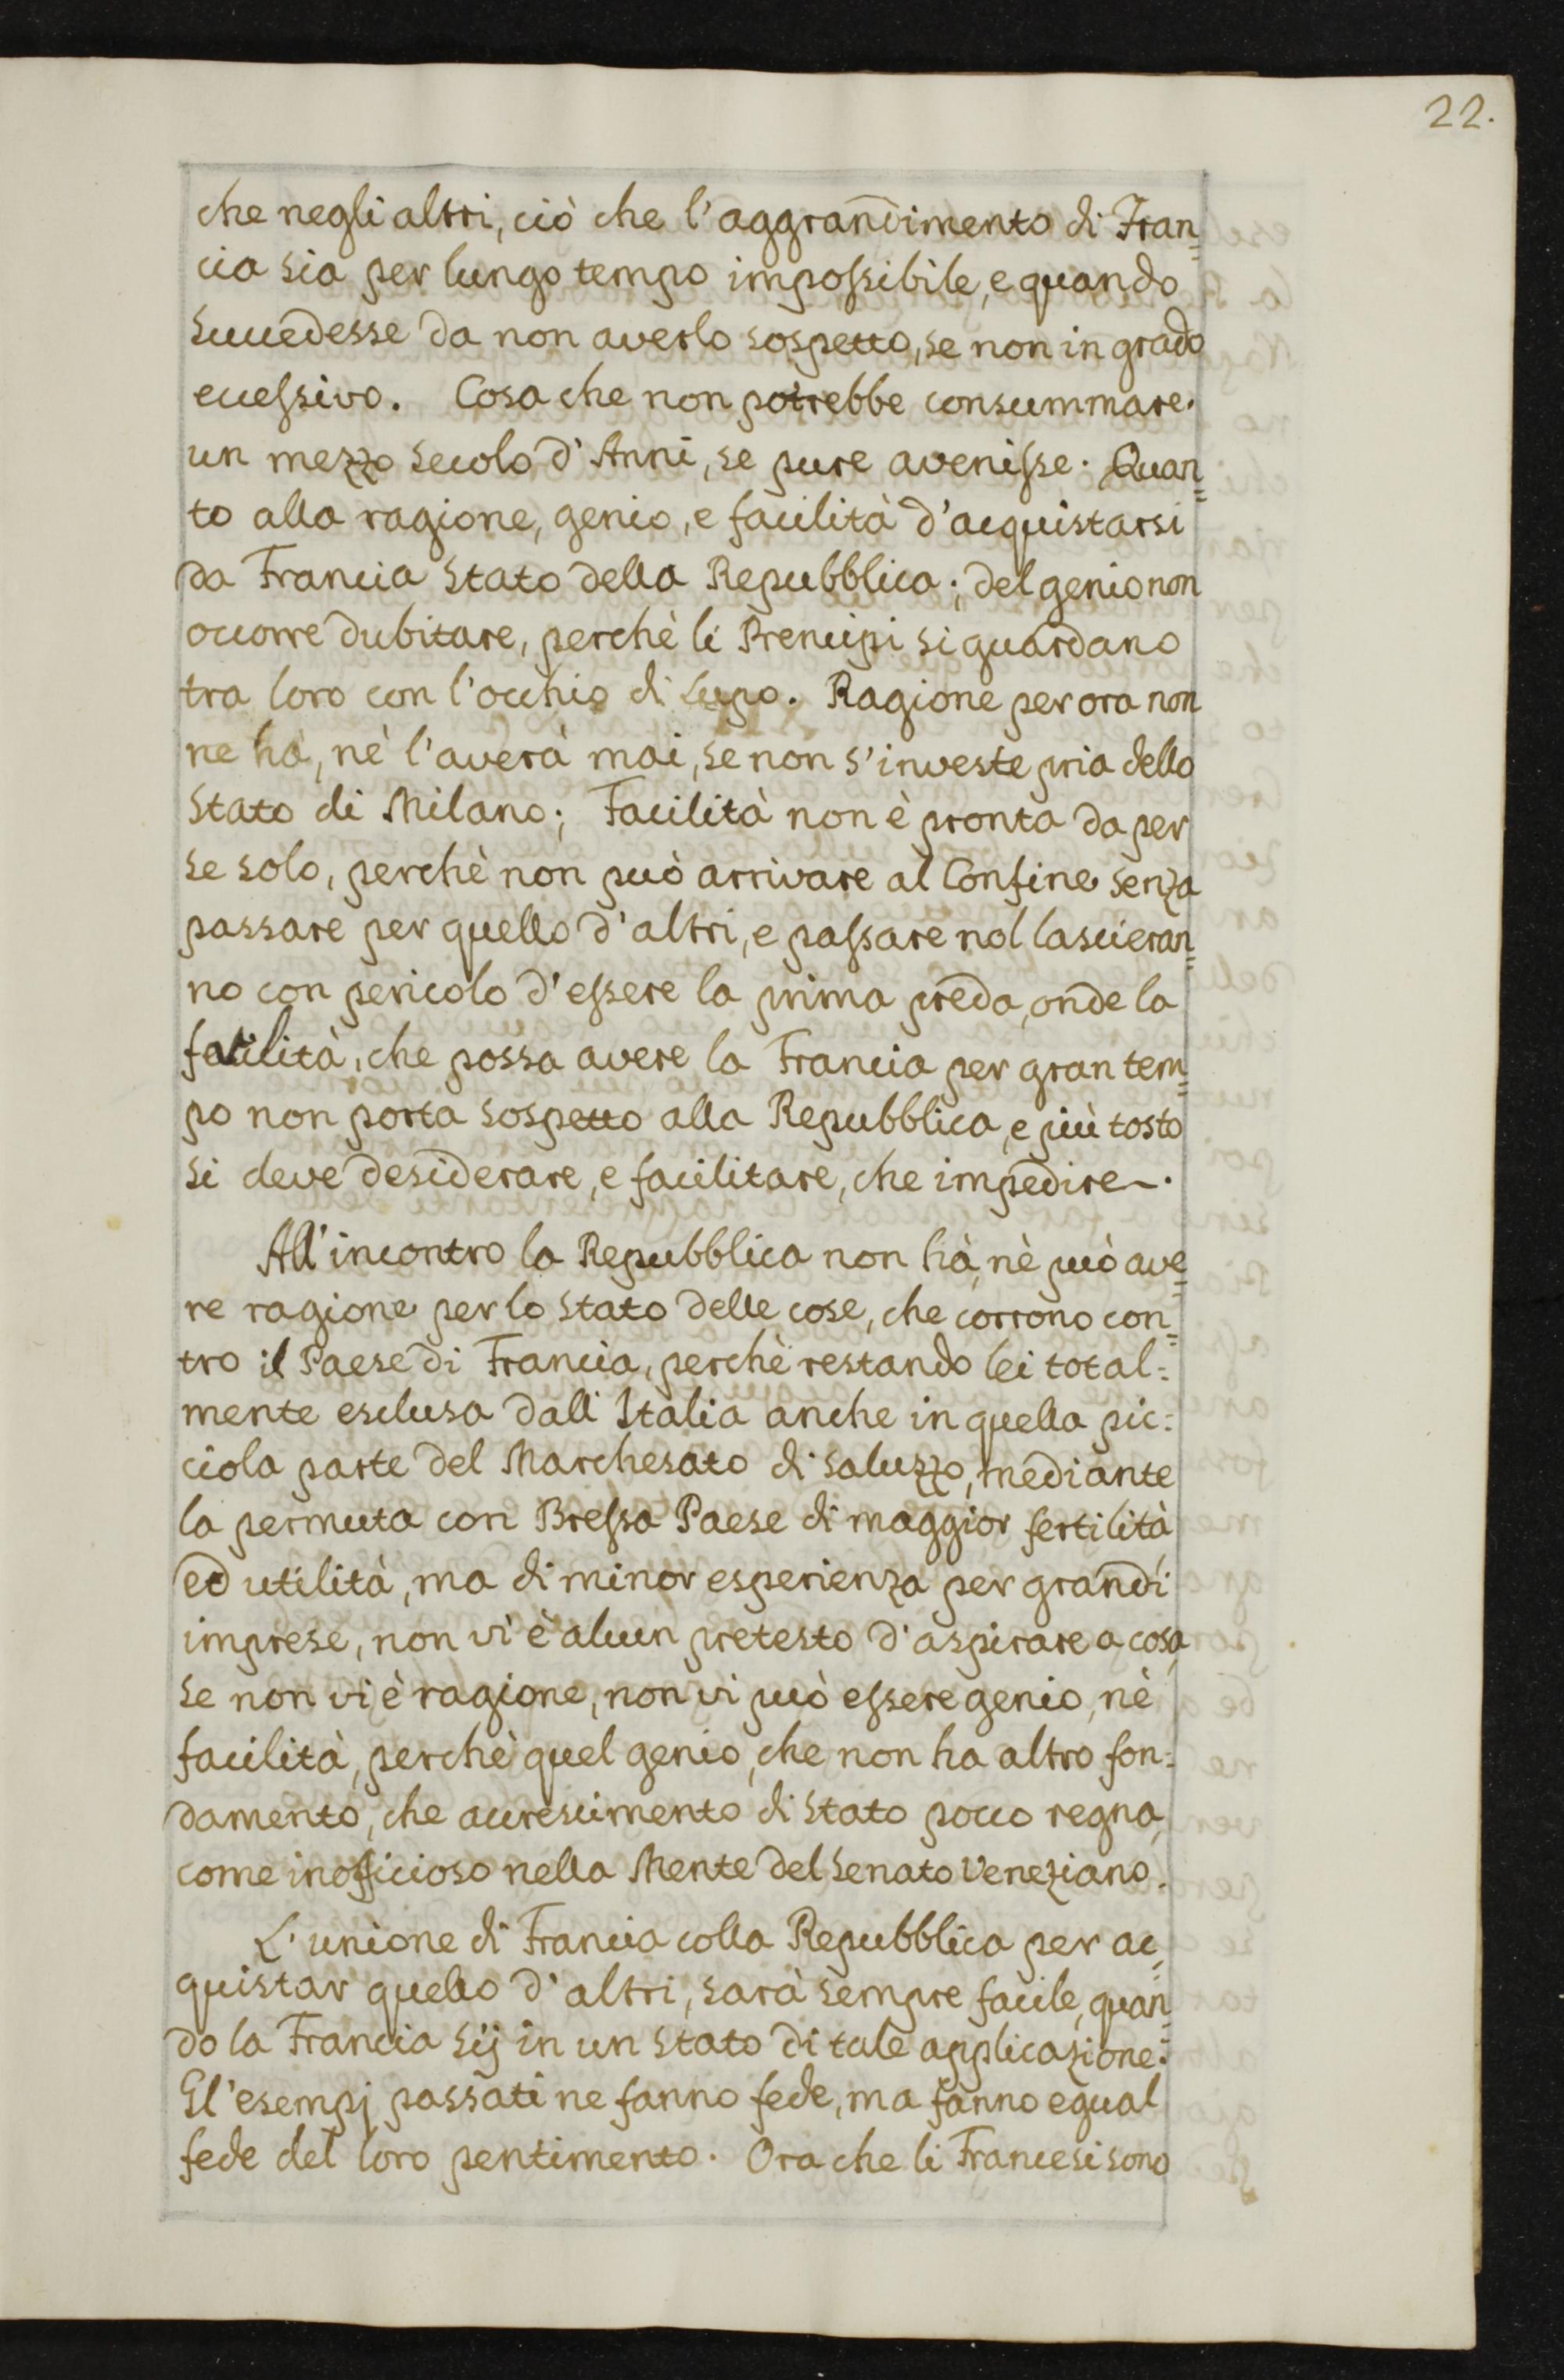 22.
che negli altri, ciò che l'aggrandimento di Fran=
cia sia per lungo tempo impossibile, e quando
succedesse da non averlo sospetto, se non in grado
eccessivo. Cosa che non potrebbe consummare
un mezzo secolo d'Anni, se pure avenisse. Quan=
to alla ragione, genio, e facilità d'acquistarsi
da Francia Stato della Repubblica; del genio non
occorre dubitare, perchè li Prencipi si guardano
tra loro con l'occhio di Lupo. Ragione per ora non
ne hà, nè l'averà mai, se non s'investe pria dello
Stato di Milano; Facilità non è pronta da per
se solo, perchè non può arrivare al Confine senza
passare per quello d'altri, e passare nol lascieran=
no con pericolo d'essere la prima preda, onde la
facilità, che possa avere la Francia per gran tem=
po non porta sospetto alla Repubblica, e più tosto
si deve desiderare, e facilitare, che impedire.
All'incontro la Repubblica non hà, nè può ave=
re ragione per lo Stato delle cose, che corrono con=
tro il Paese di Francia, perchè restando lei total=
mente esclusa dall'Italia anche in quella pic=
ciola parte del Marchesato di Saluzzo, mediante
la permuta con Bressa Paese di maggior fertilità
ed utilità, ma di minor esperienza per grandi
imprese, non vi è alcun pretesto d'aspirare a cosa,
se non vi è ragione, non vi può essere genio, nè
facilità, perchè quel genio, che non ha altro fon=
damento, che accrescimento di Stato pocco regna,
come inofficioso nella Mente del Senato Veneziano.
L'unione di Francia colla Repubblica per ac=
quistar quello d'altri, sarà sempre facile, quan=
do la Francia sij in un Stato di tale applicazione.
Gl'esempj passati ne fanno fede, ma fanno egual
fede del loro pentimento. Ora che li Francesi sono